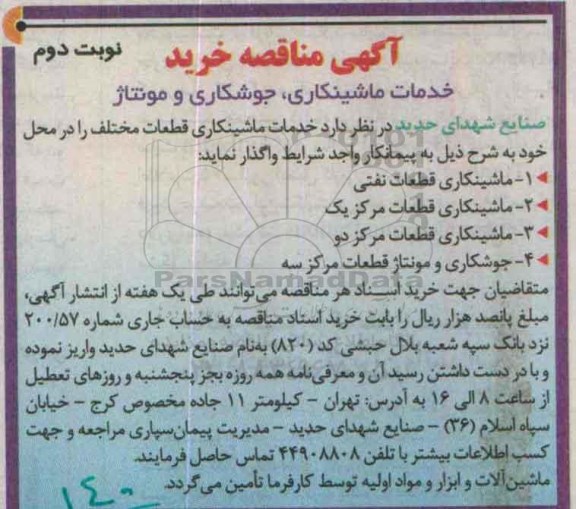 آگهی مناقصه خرید
نوبت دوم
خدمات ماشینکاری، جوشکاری و مونتاژ
صنایع شهدای حدید در نظر دارد خدمات ماشینکاری قطعات مختلف را در محل
خود به شرح ذیل به پیمانکار واجد شرایط واگذار نماید:
۱- ماشینکاری قطعات نفتی
۲- ماشینکاری قطعات مرکز یک
۳- ماشینکاری قطعات مرکز دو
۴- جوشکاری و مونتاژ قطعات مرکز سه
ParsNamadData
متقاضیان جهت خرید اسناد هر مناقصه می‌توانند طی یک هفته از انتشار آگهی،
مبلغ پانصد هزار ریال را بابت خرید اسناد مناقصه به حساب جاری شماره ۲۰۰/۵۷
نزد بانک سپه شعبه بلال حبشی کد (۸۲۰) به‌نام صنایع شهدای حدید واریز نموده
و با در دست داشتن رسید آن و معرفی‌نامه همه روزه بجز پنجشنبه و روزهای تعطیل
از ساعت ۸ الی ۱۶ به آدرس: تهران - کیلومتر ۱۱ جاده مخصوص کرج - خیابان
سپاه اسلام (۳۶) - صنایع شهدای حدید - مدیریت پیمان‌سپاری مراجعه و جهت
کسب اطلاعات بیشتر با تلفن ۴۴۹۰۸۸۰۸ تماس حاصل فرمایند.
ماشین‌آلات و ابزار و مواد اولیه توسط کارفرما تأمین می‌گردد.